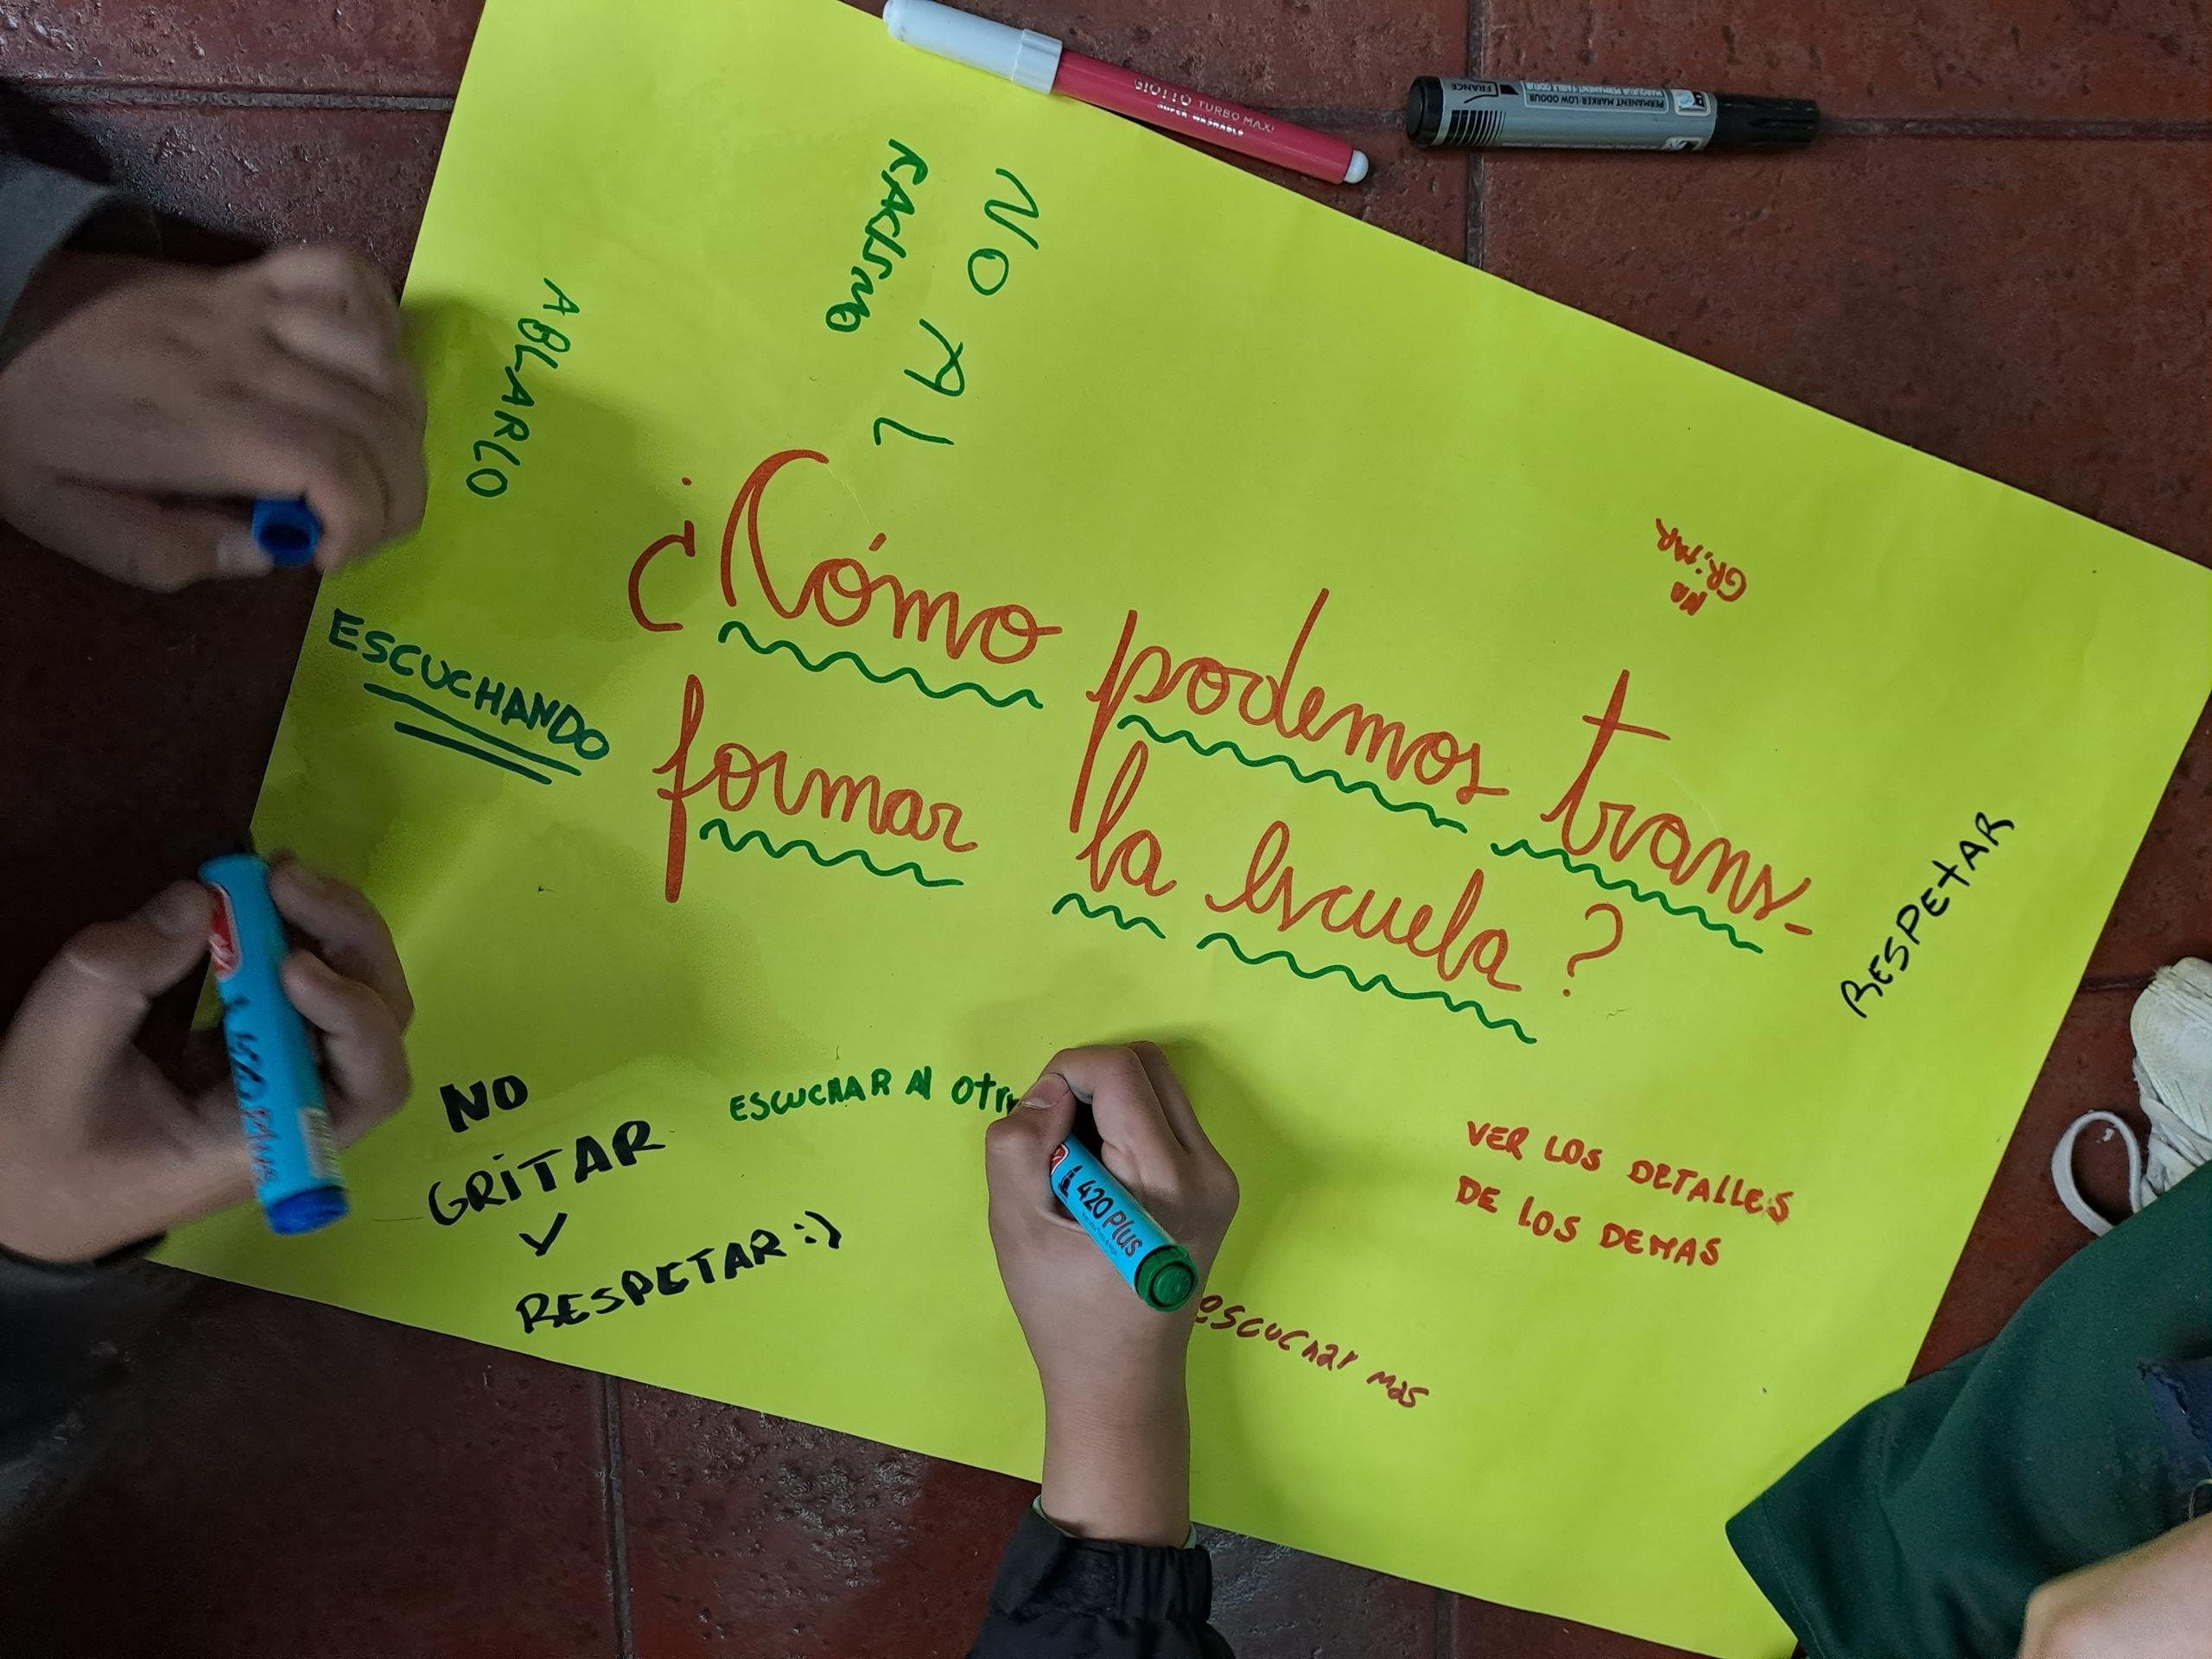 GIOTTO TURBO MAXI
SUPER WASHABLE
PERMANENT MARKER LOW ODOUR
FRANCE
NO AL
RACISMO
ABLARLO
¿Cómo podemos trans-
formar la escuela?
NO
GRiTAR
RESPEtAR
ESCUCHANDO
NO
GRiTAR
Y
RESPETAR :)
ESCUCHAR Al Otr
420 Plus
VER LOS DETAllES
DE LOS DEMAS
escuchar mas